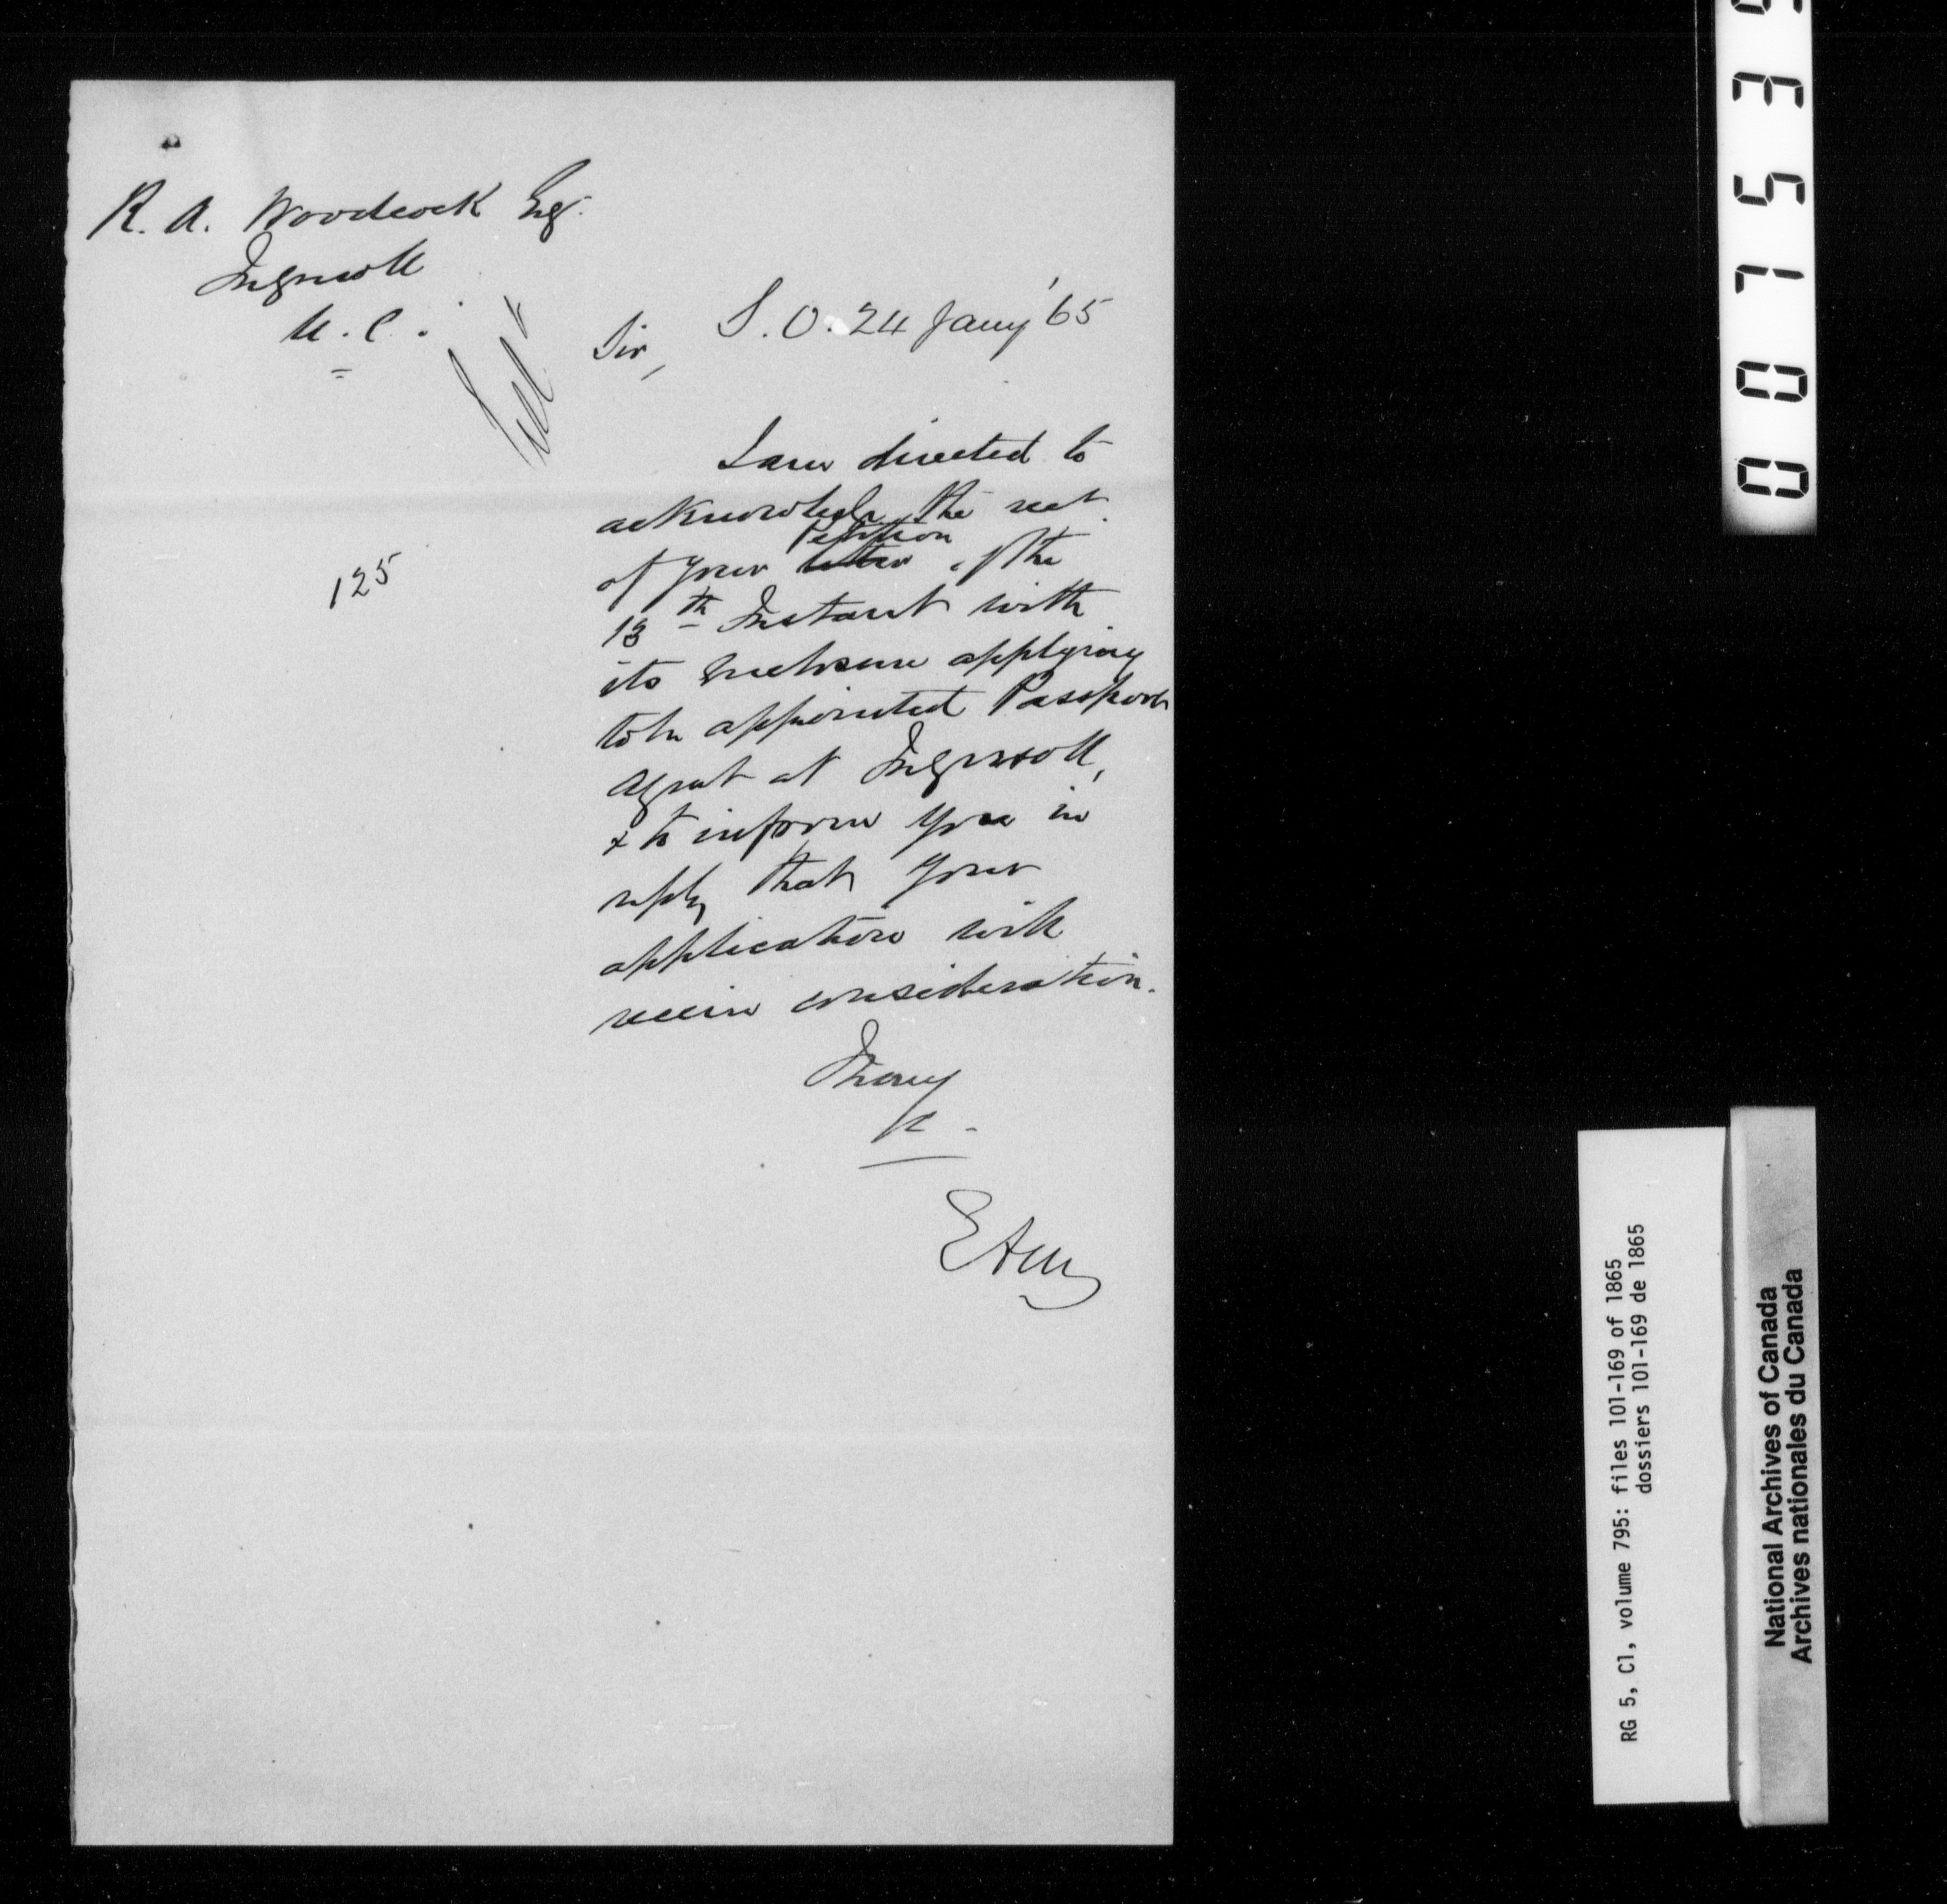 R. A. Woodcock Esq.
Ingersoll
U. C.
S. O. 24 Jany '65
Sir,
I am directed to
acknowledge the rect.
of your letter Petition of the
13th Instant with
its enclosure applying
to be appointed Passport
agent at Ingersoll,
& to inform you in
reply that your
application will
receive consideration.
I have
&c -
EAM
125
00753
RG 5, C1, volume 795: files 101-169 of 1865
dossiers 101-169 de 1865
National Archives of Canada
Archives nationales du Canada